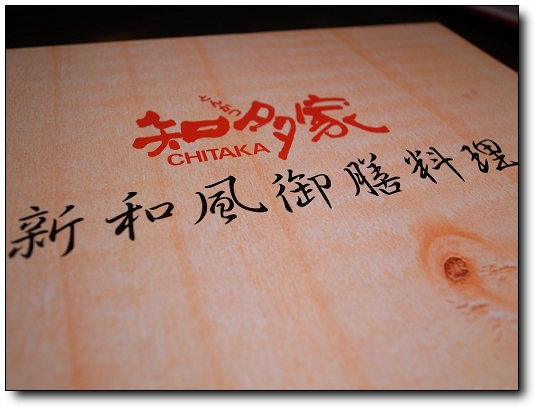 とんかつ
知多家
CHITAKA
新和風御膳料理